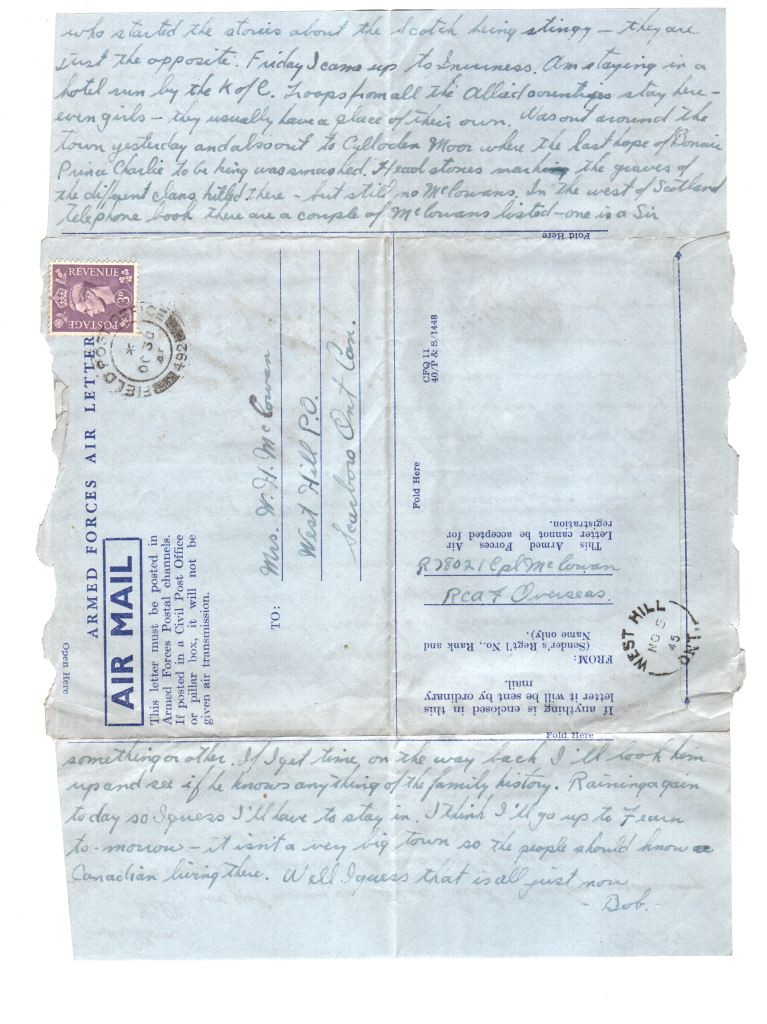 who started the stories about the Scotch being stingy – they are
just the opposite. Friday I came up to Inverness. Am staying in a
hotel run by the K of C. Troops from all the Allied countries stay here –
even girls – they usually have a place of their own. Was out around the
town yesterday and also out to Culloden Moor where the last hope of Bonnie
Prince Charlie to be king was smashed. Head stones marking the graves of
the different clans killed there – but still no McCowans. In the west of Scotland
telephone book there are a couple of McCowans listed – one is a Sir
Fold Here
REVENUE
3D
POSTAGE
FIELD POST OFFICE
492
30 OC 45
ARMED FORCES AIR LETTER
AIR MAIL
This letter must be posted in
Armed Forces Postal channels.
If posted in a Civil Post Office
or pillar box, it will not be
given air transmission.
Open Here
TO:
Mrs. W. H. McCowan
West Hill P.O.
Scarboro Ont Can.
CFQ 11
40/P & S/1448
Fold Here
This Armed Forces Air
Letter cannot be accepted for
registration.
R78021 Cpl McCowan
RCAF Overseas.
FROM:
(Sender's Reg't'l No., Rank and
Name only).
If anything is enclosed in this
letter it will be sent by ordinary
mail.
WEST HILL
NO 5
45
ONT
Fold Here
something or other. If I get time, on the way back I'll look him
up and see if he knows anything of the family history. Raining again
today so I guess I'll have to stay in. I think I'll go up to Fearn
to-morrow – it isn't a very big town so the people should know a
Canadian living there. Well I guess that is all just now
– Bob.